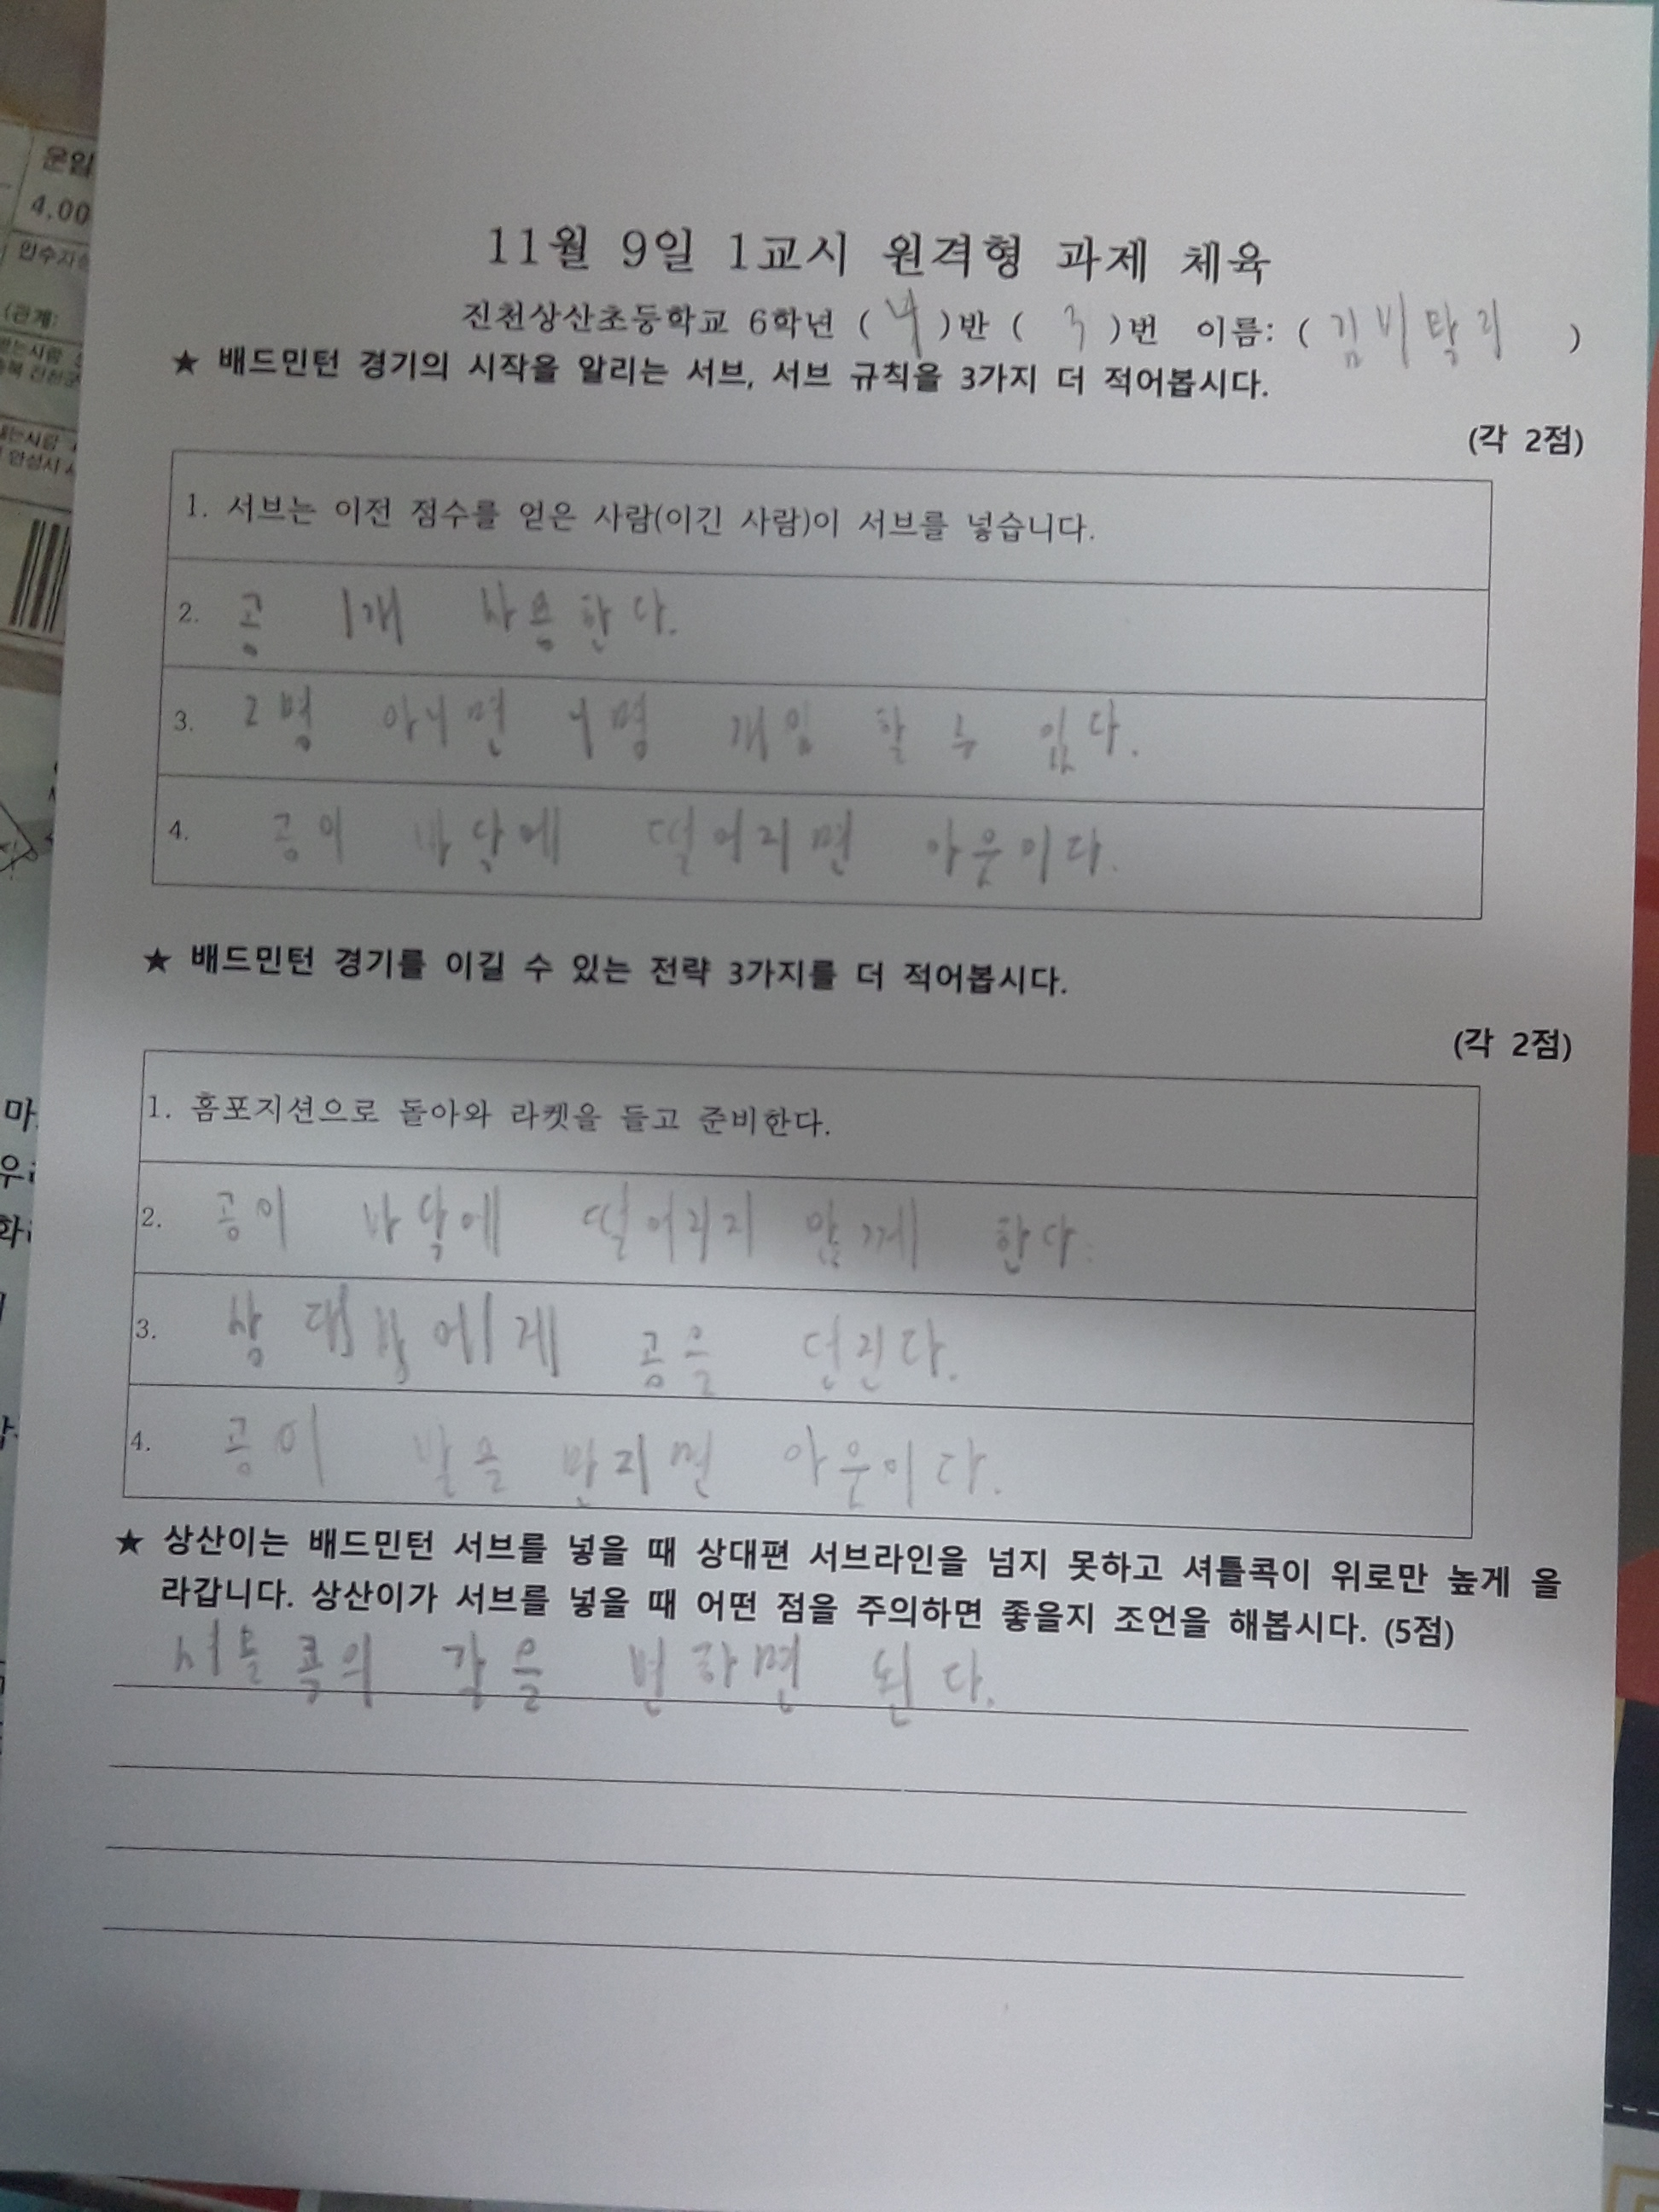 운임
4,00
인수자
(관계:
11월 9일 1교시 원격형 과제 체육
진천상산초등학교 6학년 ( 4 )반 ( 3 )번 이름: ( 김비탈리 )
★ 배드민턴 경기의 시작을 알리는 서브, 서브 규칙을 3가지 더 적어봅시다.
(각 2점)
1. 서브는 이전 점수를 얻은 사람(이긴 사람)이 서브를 넣습니다.
2. 공 1개 사용한다.
3. 2명 아니면 4명 개임 할 수 있다.
4. 공이 바닥에 떨어지면 아웃이다.
★ 배드민턴 경기를 이길 수 있는 전략 3가지를 더 적어봅시다.
(각 2점)
1. 홈포지션으로 돌아와 라켓을 들고 준비한다.
2. 공이 바닥에 떨어리지 않게 한다.
3. 상대방에게 공을 던진다.
4. 공이 발을 만지면 아웃이다.
★ 상산이는 배드민턴 서브를 넣을 때 상대편 서브라인을 넘지 못하고 셔틀콕이 위로만 높게 올
라갑니다. 상산이가 서브를 넣을 때 어떤 점을 주의하면 좋을지 조언을 해봅시다. (5점)
서틀콕의 각을 변하면 된다.